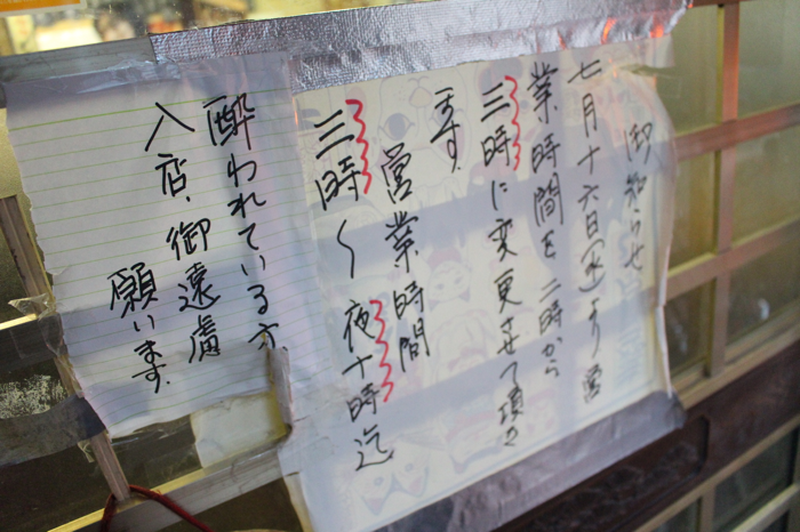 御知らせ
七月十六日(水)より営
業時間を二時から
三時に変更させて頂き
ます。
営業時間
三時〜夜十時迄
酔われている方、
入店、御遠慮
願います。